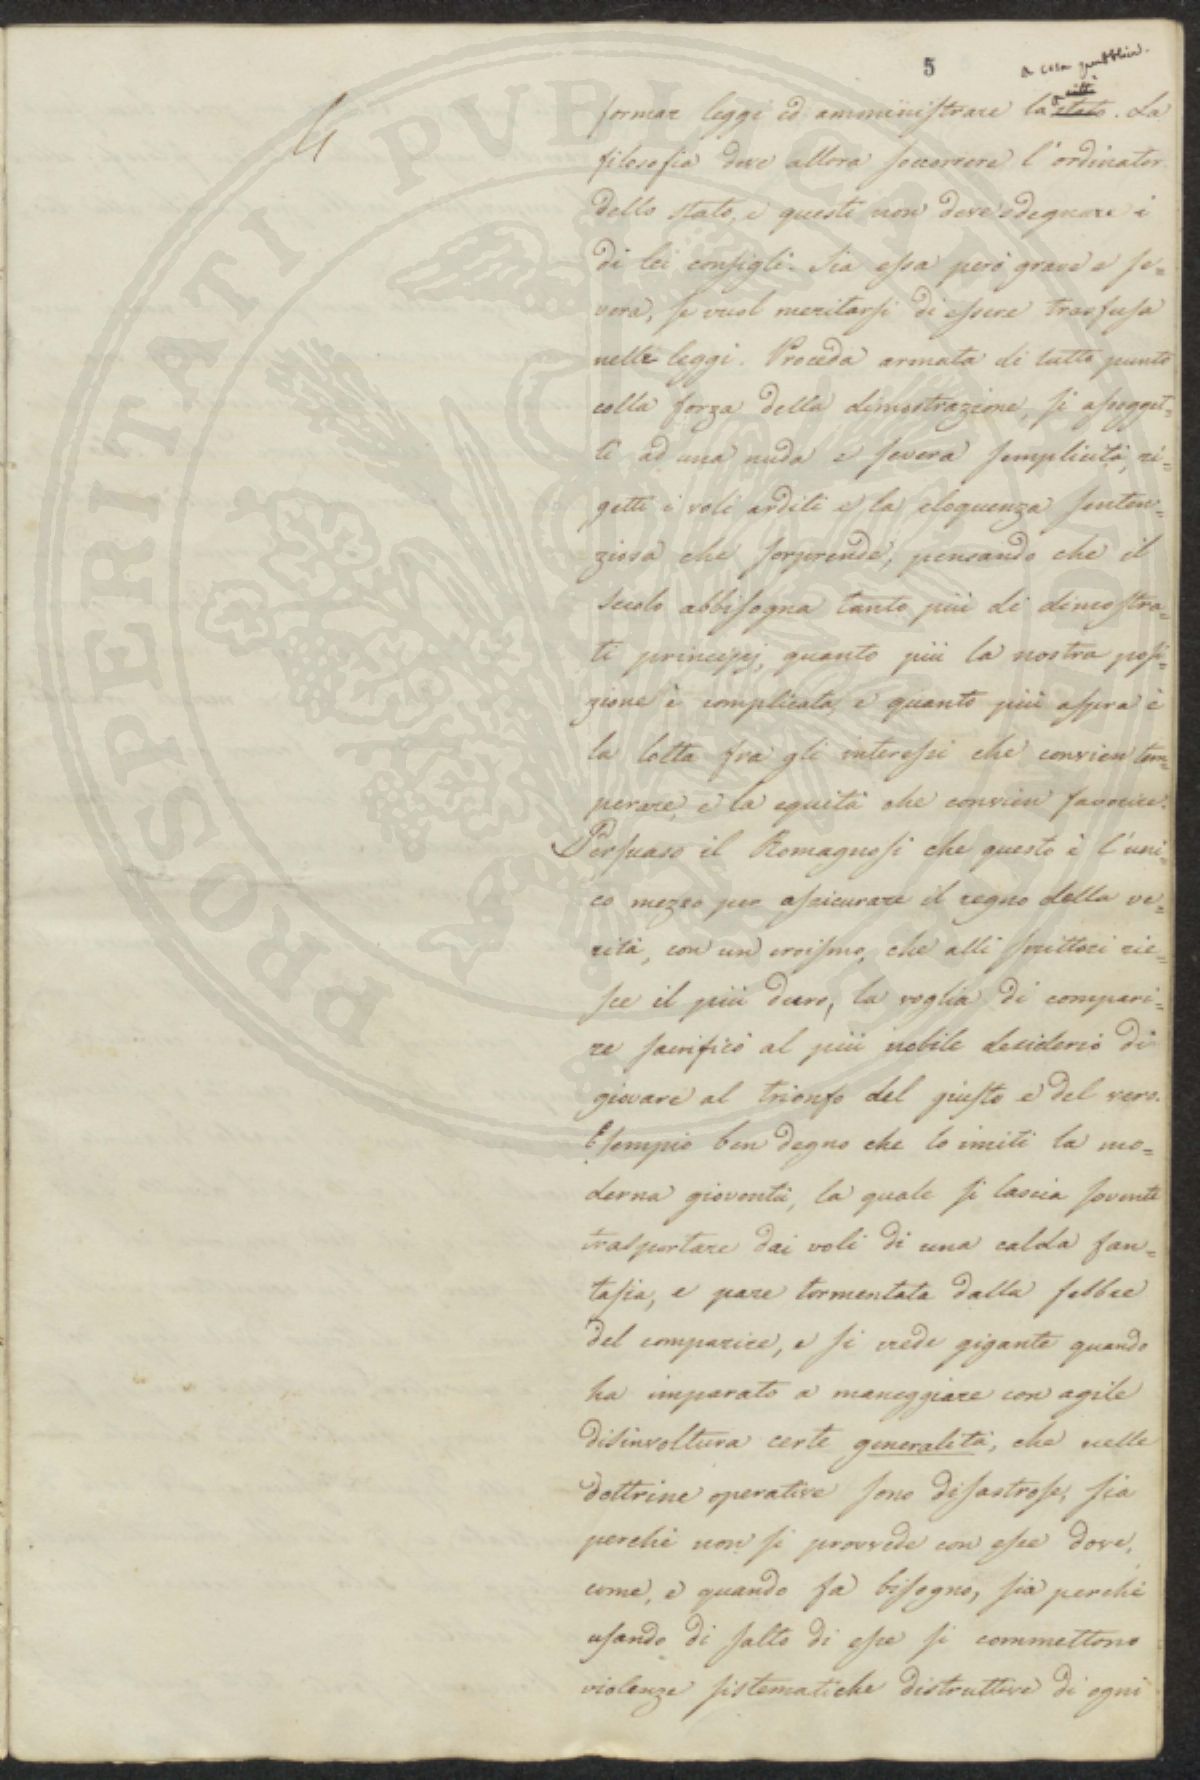 5
4
a cosa pubblica.
a città
formar leggi ed amministrare lo stato. La
filosofia deve allora soccorrere l'ordinator
dello stato, e questi non deve sdegnare i
di lei consigli. Sia essa però grave e se=
vera, se vuol meritarsi di essere trasfusa
nelle leggi. Proceda armata di tutto punto
colla forza della dimostrazione, si assogget=
ti ad una nuda e severa semplicità, ri=
getti i voli arditi e la eloquenza senten=
ziosa che sorprende, pensando che il
secolo abbisogna tanto più di dimostra=
ti principj, quanto più la nostra posi=
zione è complicata, e quanto più aspra è
la lotta fra gli interessi che convien tem=
perare, e la equità che convien favorire.
Persuaso il Romagnosi che questo è l'uni=
co mezzo per assicurare il regno della ve=
rità, con un eroismo, che alli scrittori rie=
sce il più duro, la voglia di compari=
re sacrificò al più nobile desiderio di
giovare al trionfo del giusto e del vero.
Esempio ben degno che lo imiti la mo=
derna gioventù, la quale si lascia sovente
trasportare dai voli di una calda fan=
tasia, e pare tormentata dalla febbre
del comparire, e si crede gigante quando
ha imparato a maneggiare con agile
disinvoltura certe generalità, che nelle
dottrine operative sono disastrose, sia
perchè non si provvede con esse dove,
come, e quando fa bisogno, sia perchè
usando di salto di esse si commettono
violenze sistematiche distruttive di ogni
PROSPERITATI PUBLICAE